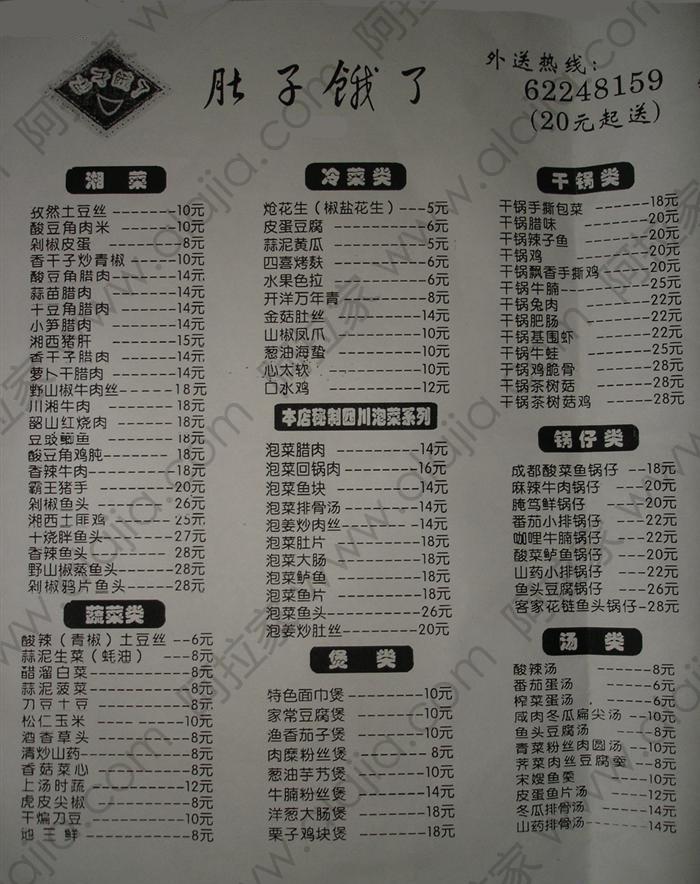 肚子饿了
肚子饿了
外送热线:
62248159
(20元起送)
湘菜
孜然土豆丝 -------10元
酸豆角肉米 -------10元
剁椒皮蛋 ---------8元
香干子炒青椒 -----10元
酸豆角腊肉 -------14元
蒜苗腊肉 ---------14元
土豆角腊肉 -------14元
小笋腊肉 ---------14元
湘西猪肝 ---------15元
香干子腊肉 -------14元
萝卜干腊肉 -------14元
野山椒牛肉丝------18元
川湘牛肉 ---------18元
韶山红烧肉 -------18元
豆豉鲫鱼 ---------18元
酸豆角鸡肫--------18元
香辣牛肉----------18元
霸王猪手 ---------20元
剁椒鱼头 ---------26元
湘西土匪鸡 -------25元
十烧胖鱼头--------27元
香辣鱼头 ---------28元
野山椒蒸鱼头------28元
剁椒鸦片鱼头------28元
蔬菜类
酸辣(青椒)土豆丝 --6元
蒜泥生菜(蚝油) ----8元
醋溜白菜 ----------8元
蒜泥菠菜 ----------8元
刀豆土豆 ----------8元
松仁玉米 ----------10元
酒香草头 ----------8元
清炒山药-----------8元
香菇菜心 ----------8元
上汤时蔬 ----------12元
虎皮尖椒 ----------8元
干煸刀豆 ----------10元
地三鲜 ------------8元
冷菜类
炝花生(椒盐花生) ---5元
皮蛋豆腐 ----------6元
蒜泥黄瓜 ----------5元
四喜烤麸 ----------6元
水果色拉 ----------6元
开洋万年青 --------8元
金菇肚丝 ----------14元
山椒凤爪 ----------10元
葱油海蛰 ----------10元
心太软 ------------10元
口水鸡 ------------12元
本店秘制四川泡菜系列
泡菜腊肉 ----------14元
泡菜回锅肉---------16元
泡菜鱼块 ----------14元
泡菜排骨汤---------14元
泡姜炒肉丝 --------14元
泡菜肚片 ----------18元
泡菜大肠 ----------18元
泡菜鲈鱼 ----------18元
泡菜鱼片 ----------18元
泡菜鱼头 ----------26元
泡姜炒肚丝 --------20元
煲类
特色面巾煲 --------10元
家常豆腐煲 --------10元
渔香茄子煲 --------10元
肉糜粉丝煲 --------10元
葱油芋艿煲 --------10元
牛腩粉丝煲 --------14元
洋葱大肠煲 --------18元
栗子鸡块煲 --------18元
干锅类
干锅手撕包菜 ------18元
干锅腊味 ----------20元
干锅辣子鱼 --------20元
干锅鸡 ------------20元
干锅飘香手撕鸡-----20元
干锅牛腩-----------25元
干锅兔肉 ----------22元
干锅肥肠 ----------22元
干锅基围虾 --------22元
干锅牛蛙 ----------25元
干锅鸡脆骨 --------28元
干锅茶树菇 --------22元
干锅茶树菇鸡 ------28元
锅仔类
成都酸菜鱼锅仔 --18元
麻辣牛肉锅仔 ----20元
腌笃鲜锅仔 ------20元
番茄小排锅仔 ----22元
咖哩牛腩锅仔 ----22元
酸菜鲈鱼锅仔 ----22元
山药小排锅仔 ----22元
鱼头豆腐锅仔 ----26元
客家花鲢鱼头锅仔--28元
汤类
酸辣汤 -----------8元
番茄蛋汤 ---------6元
榨菜蛋汤 ---------6元
咸肉冬瓜扁尖汤 ---10元
鱼头豆腐汤 -------8元
青菜粉丝肉圆汤 ---10元
荠菜肉丝豆腐羹 ---8元
宋嫂鱼羹 ---------10元
皮蛋鱼片汤 -------12元
冬瓜排骨汤 -------14元
山药排骨汤 -------14元
阿拉家 www.alajia.com